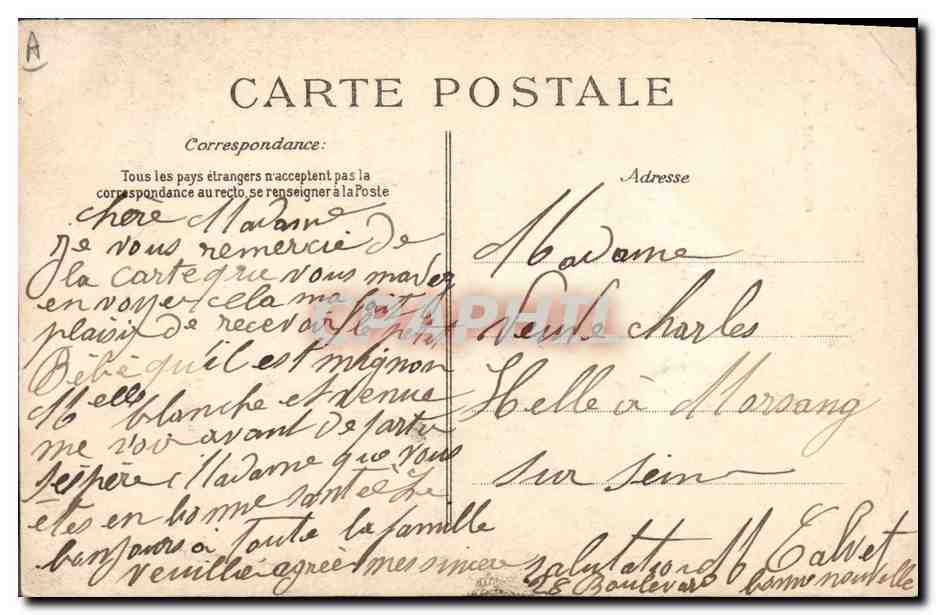 A
CARTE POSTALE
Correspondance:
Tous les pays étrangers n'acceptent pas la
correspondance au recto, se renseigner à la Poste
Adresse
chère Madame
Je vous remercie de
la carte que vous mavez
envoyer cela ma fait
plaisir de recevoir le petit
Bébé qu'il est mignon
Melle blanche et venue
me voir avant de partir
Jéspére Madame que vous
etes en bonne santé Le
bonjours à toute la famille
veuillié agrée mes sincère salutation M Calvet
28 Boulevar bonne nouvelle
Madame
Veuve Charles
Helle à Morsang
sur seine
CPAPHIL